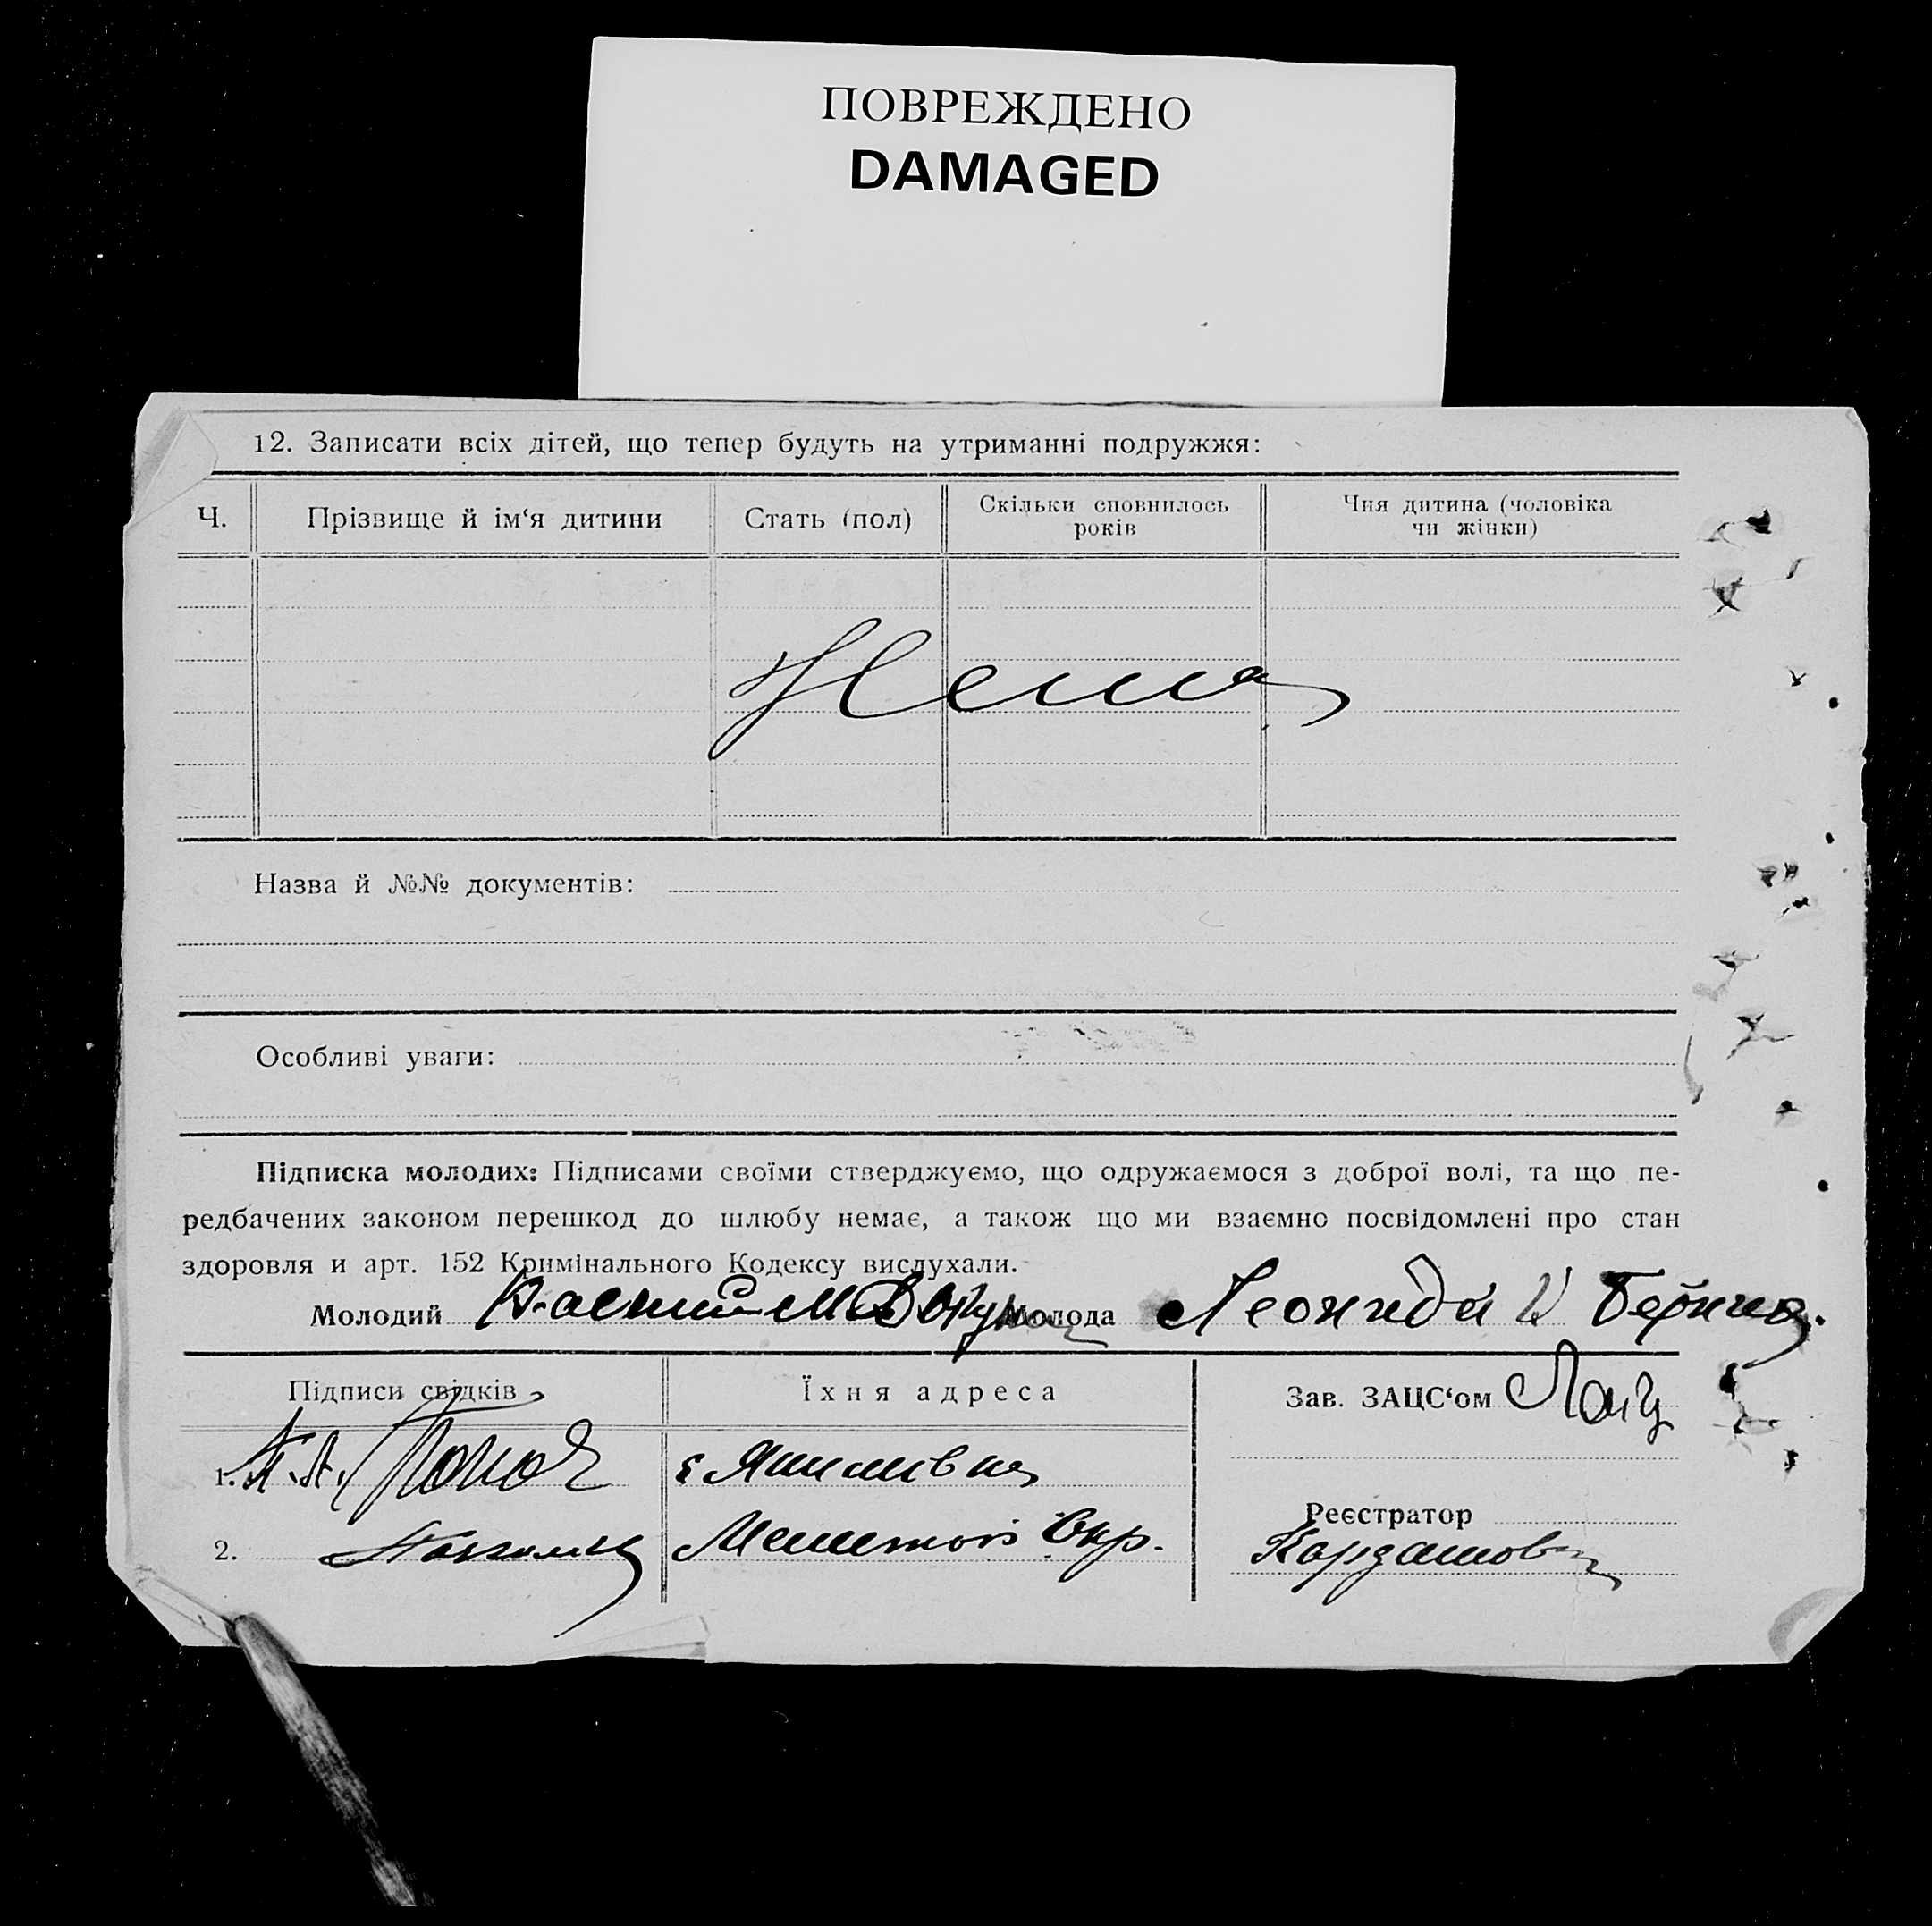 ПОВРЕЖДЕНО
DAMAGED
12. Записати всіх дітей, що тепер будуть на утриманні подружжя:
Ч. Прізвище й ім‘я дитини Стать (пол) Скільки сповнилось років Чия дитина (чоловіка чи жінки)
Нема
Назва й №№ документів:
Особливі уваги:
Підписка молодих: Підписами своїми стверджуємо, що одружаємося з доброї волі, та що пе-
редбачених законом перешкод до шлюбу немає, а також що ми взаємно посвідомлені про стан
здоровля и арт. 152 Кримінального Кодексу вислухали.
Молодий Молода Леонида
Підписи свідків Їхня адреса Зав. ЗАЦС‘ом
1.
Реєстратор
2.